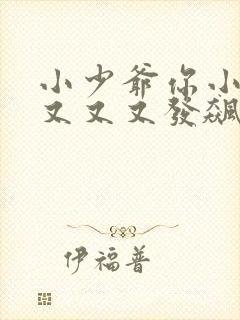 小少爺你小
又又又發飆
伊福普